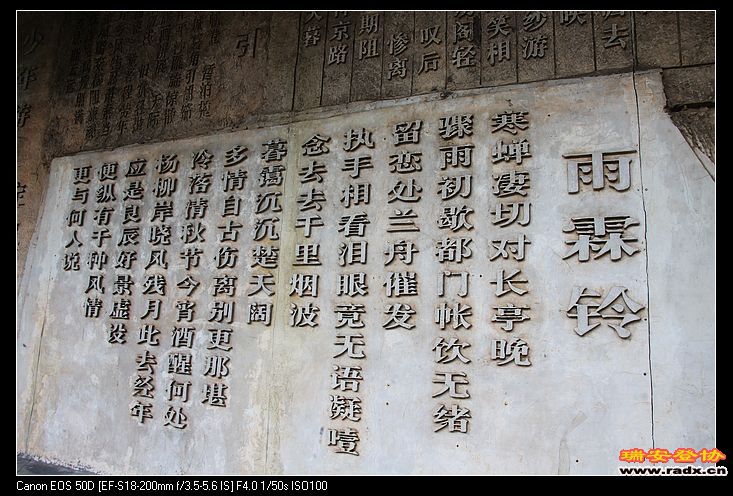 归去
映
纱游
笑相
阁轻
叹后
惨离
期阻
京路
暮
引
雨霖铃
寒蝉凄切对长亭晚
骤雨初歇都门帐饮无绪
留恋处兰舟催发
执手相看泪眼竞无语疑噎
念去去千里烟波
暮霭沉沉楚天阔
多情自古伤离别更那堪
冷落情秋节今宵酒醒何处
杨柳岸晓风残月此去经年
应是良辰好景虚设
便纵有千种风情
更与何人说
瑞安登协
www.radx.cn
Canon EOS 50D [EF-S18-200mm f/3.5-5.6 IS] F4.0 1/50s ISO100